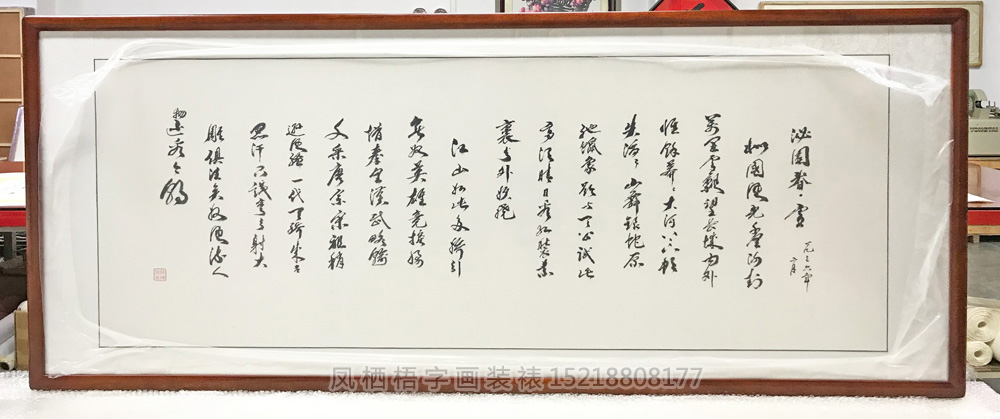 沁园春·雪
一九三六年
二月
北國風光千里冰封
萬里雪飄望长城内外
惟餘莽莽大河上下頓
失滔滔山舞銀蛇原
馳蠟象欲与天公試比
高須晴日看紅裝素
裹分外妖嬈
江山如此多嬌引
無数英雄竞折腰
惜秦皇漢武略輸
文采唐宗宋祖稍
遜风骚一代天骄成吉
思汗只識弯弓射大
雕俱往矣数风流人
物還看今朝
凤栖梧字画装裱15218808177